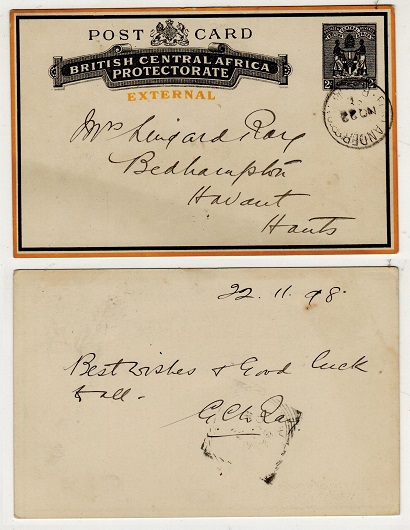 POST CARD
BRITISH CENTRAL AFRICA
PROTECTORATE
EXTERNAL
Mrs Lingard Ray
Bedhampton
Havant
Hants
NO 22
22.11.98.
Best wishes & Good luck
to all.